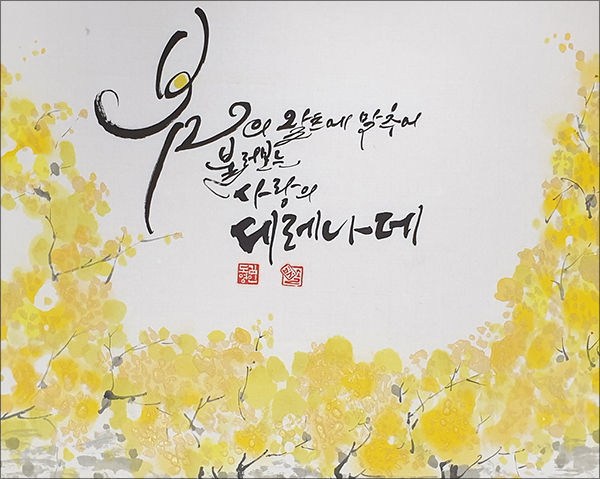 봄의 왈츠에 맞추어
불러보는
사랑의
세레나데